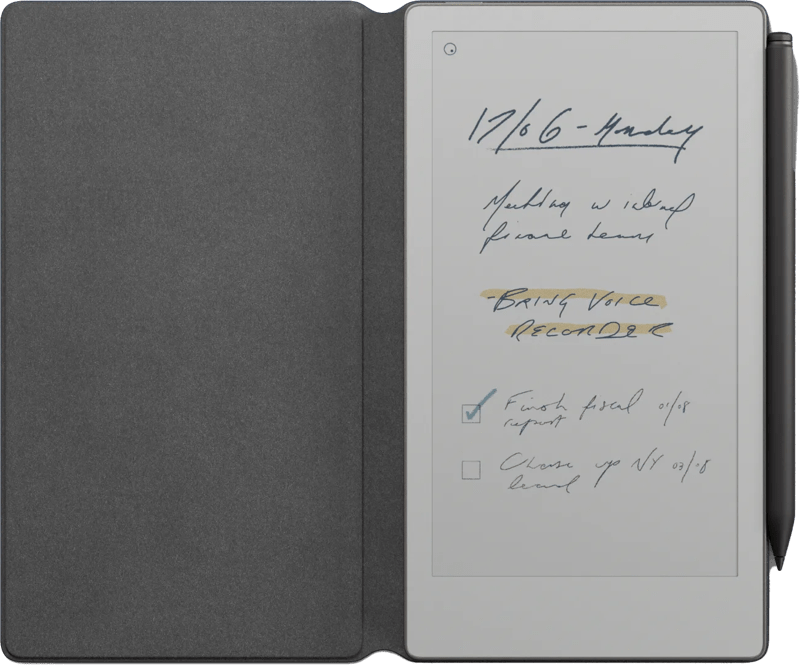 17/06 - Monday
Meeting w
finance team
- BRING VOICE
RECORDER
Finish fiscal 01/08
report
Chase up NY 03/08